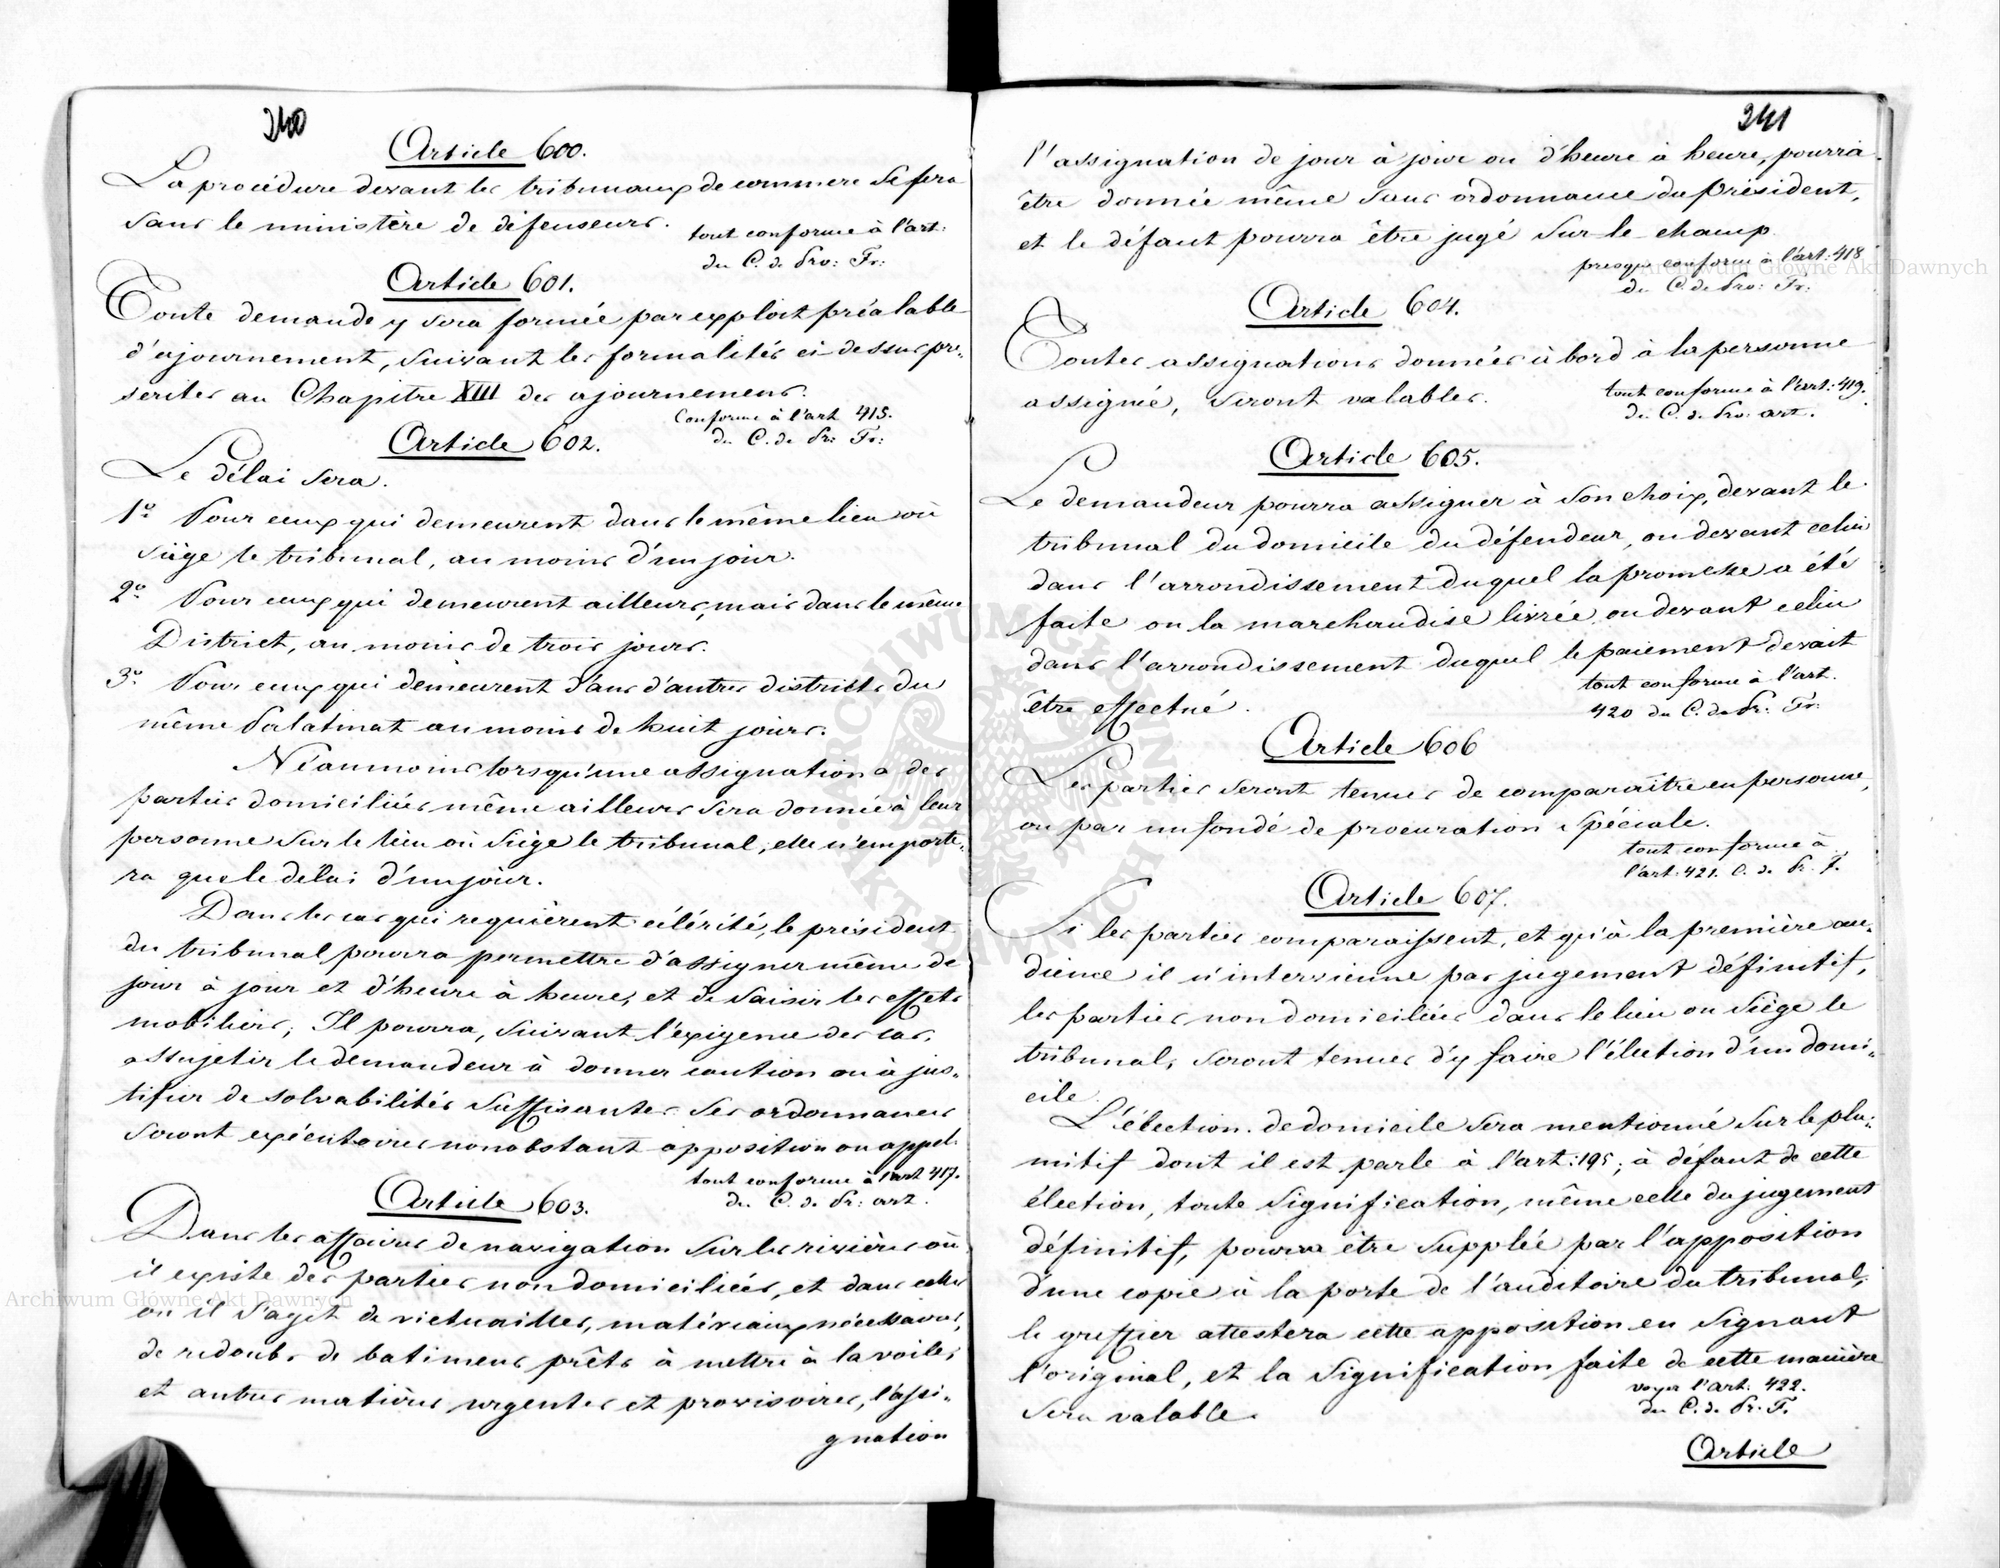 240
Article 600.
La procédure devant les tribunaux de commerce se fera
sans le ministère de défenseurs.
tout conforme à l'art:
du C. de Pro: Fr:
Article 601.
Toute demande y sera formée par exploit préalable
d'ajournement, suivant les formalités ci-dessus pre„
scrites au Chapitre XIII des ajournemens.
Conforme à l'art 415.
du C. de Pr: Fr:
Article 602.
Le délai sera.
1º Pour ceux qui demeurent dans le même lieu où
siège le tribunal, au moins d'un jour.
2º Pour ceux qui demeurent ailleurs, mais dans le même
District, au moins de trois jours.
3º Pour ceux qui demeurent dans d'autres districts du
même Palatinat au moins de huit jours.
Néanmoins lorsqu'une assignation à des
parties domiciliées même ailleurs sera donnée à leur
personne sur le lieu où siège le tribunal, elle n'emporte„
ra que le délai d'un jour.
Dans les cas qui requièrent célérité, le président
du tribunal pourra permettre d'assigner même de
jour à jour et d'heure à heure, et de saisir les effets
mobiliers; Il pourra, suivant l'exigence des cas,
assujetir le demandeur à donner caution ou à jus„
tifier de solvabilités suffisantes. Ses ordonnances
seront exécutoires nonobstant opposition ou appel.
tout conforme à l'art 417.
du C. de Pr: art.
Article 603.
Dans les affaires de navigation sur les rivières où
il existe des parties non domiciliées, et dans celles
où il s'agit de victuailles, matériaux nécessaires,
de redoubs de batimens prêts à mettre à la voile,
et autres matières urgentes et provisoires, l'assi„
gnation
241
l'assignation de jour à jour ou d'heure à heure, pourra
être donnée même sans ordonnance du président,
et le défaut pourra être jugé sur le champ
presque conforme à l'art: 418
du C. de Pro: Fr:
Article 604.
Toutes assignations données à bord à la personne
assignée, seront valables.
tout conforme à l'art: 419.
du C. de Pro: art.
Article 605.
Le demandeur pourra assigner à son choix, devant le
tribunal du domicile du défendeur, ou devant celui
dans l'arrondissement duquel la promesse a été
faite ou la marchandise livrée, ou devant celui
dans l'arrondissement duquel le paiement devait
être effectué.
tout conforme à l'art.
420 du C. de Pr: Fr:
Article 606
Les parties seront tenues de comparaître en personne,
ou par un fondé de procuration spéciale.
tout conforme à
l'art: 421. C. de Pr. F.
Article 607.
Si les parties comparaissent, et qu'à la première au„
dience il n'intervienne pas jugement définitif,
les parties non domiciliées dans le lieu ou siège le
tribunal, seront tenues d'y faire l'élection d'un domi„
cile.
L'élection de domicile sera mentionné sur le plu„
mitif dont il est parle à l'art: 195; à défaut de cette
élection, toute signification, même celle du jugement
définitif, pourra être supplée par l'apposition
d'une copie à la porte de l'auditoire du tribunal,
le greffier attestera cette apposition en signant
l'original, et la signification faite de cette manière
sera valable.
voyez l'art: 422.
du C. d. Pr. F.
Article
Archiwum Główne Akt Dawnych
Archiwum Główne Akt Dawnych